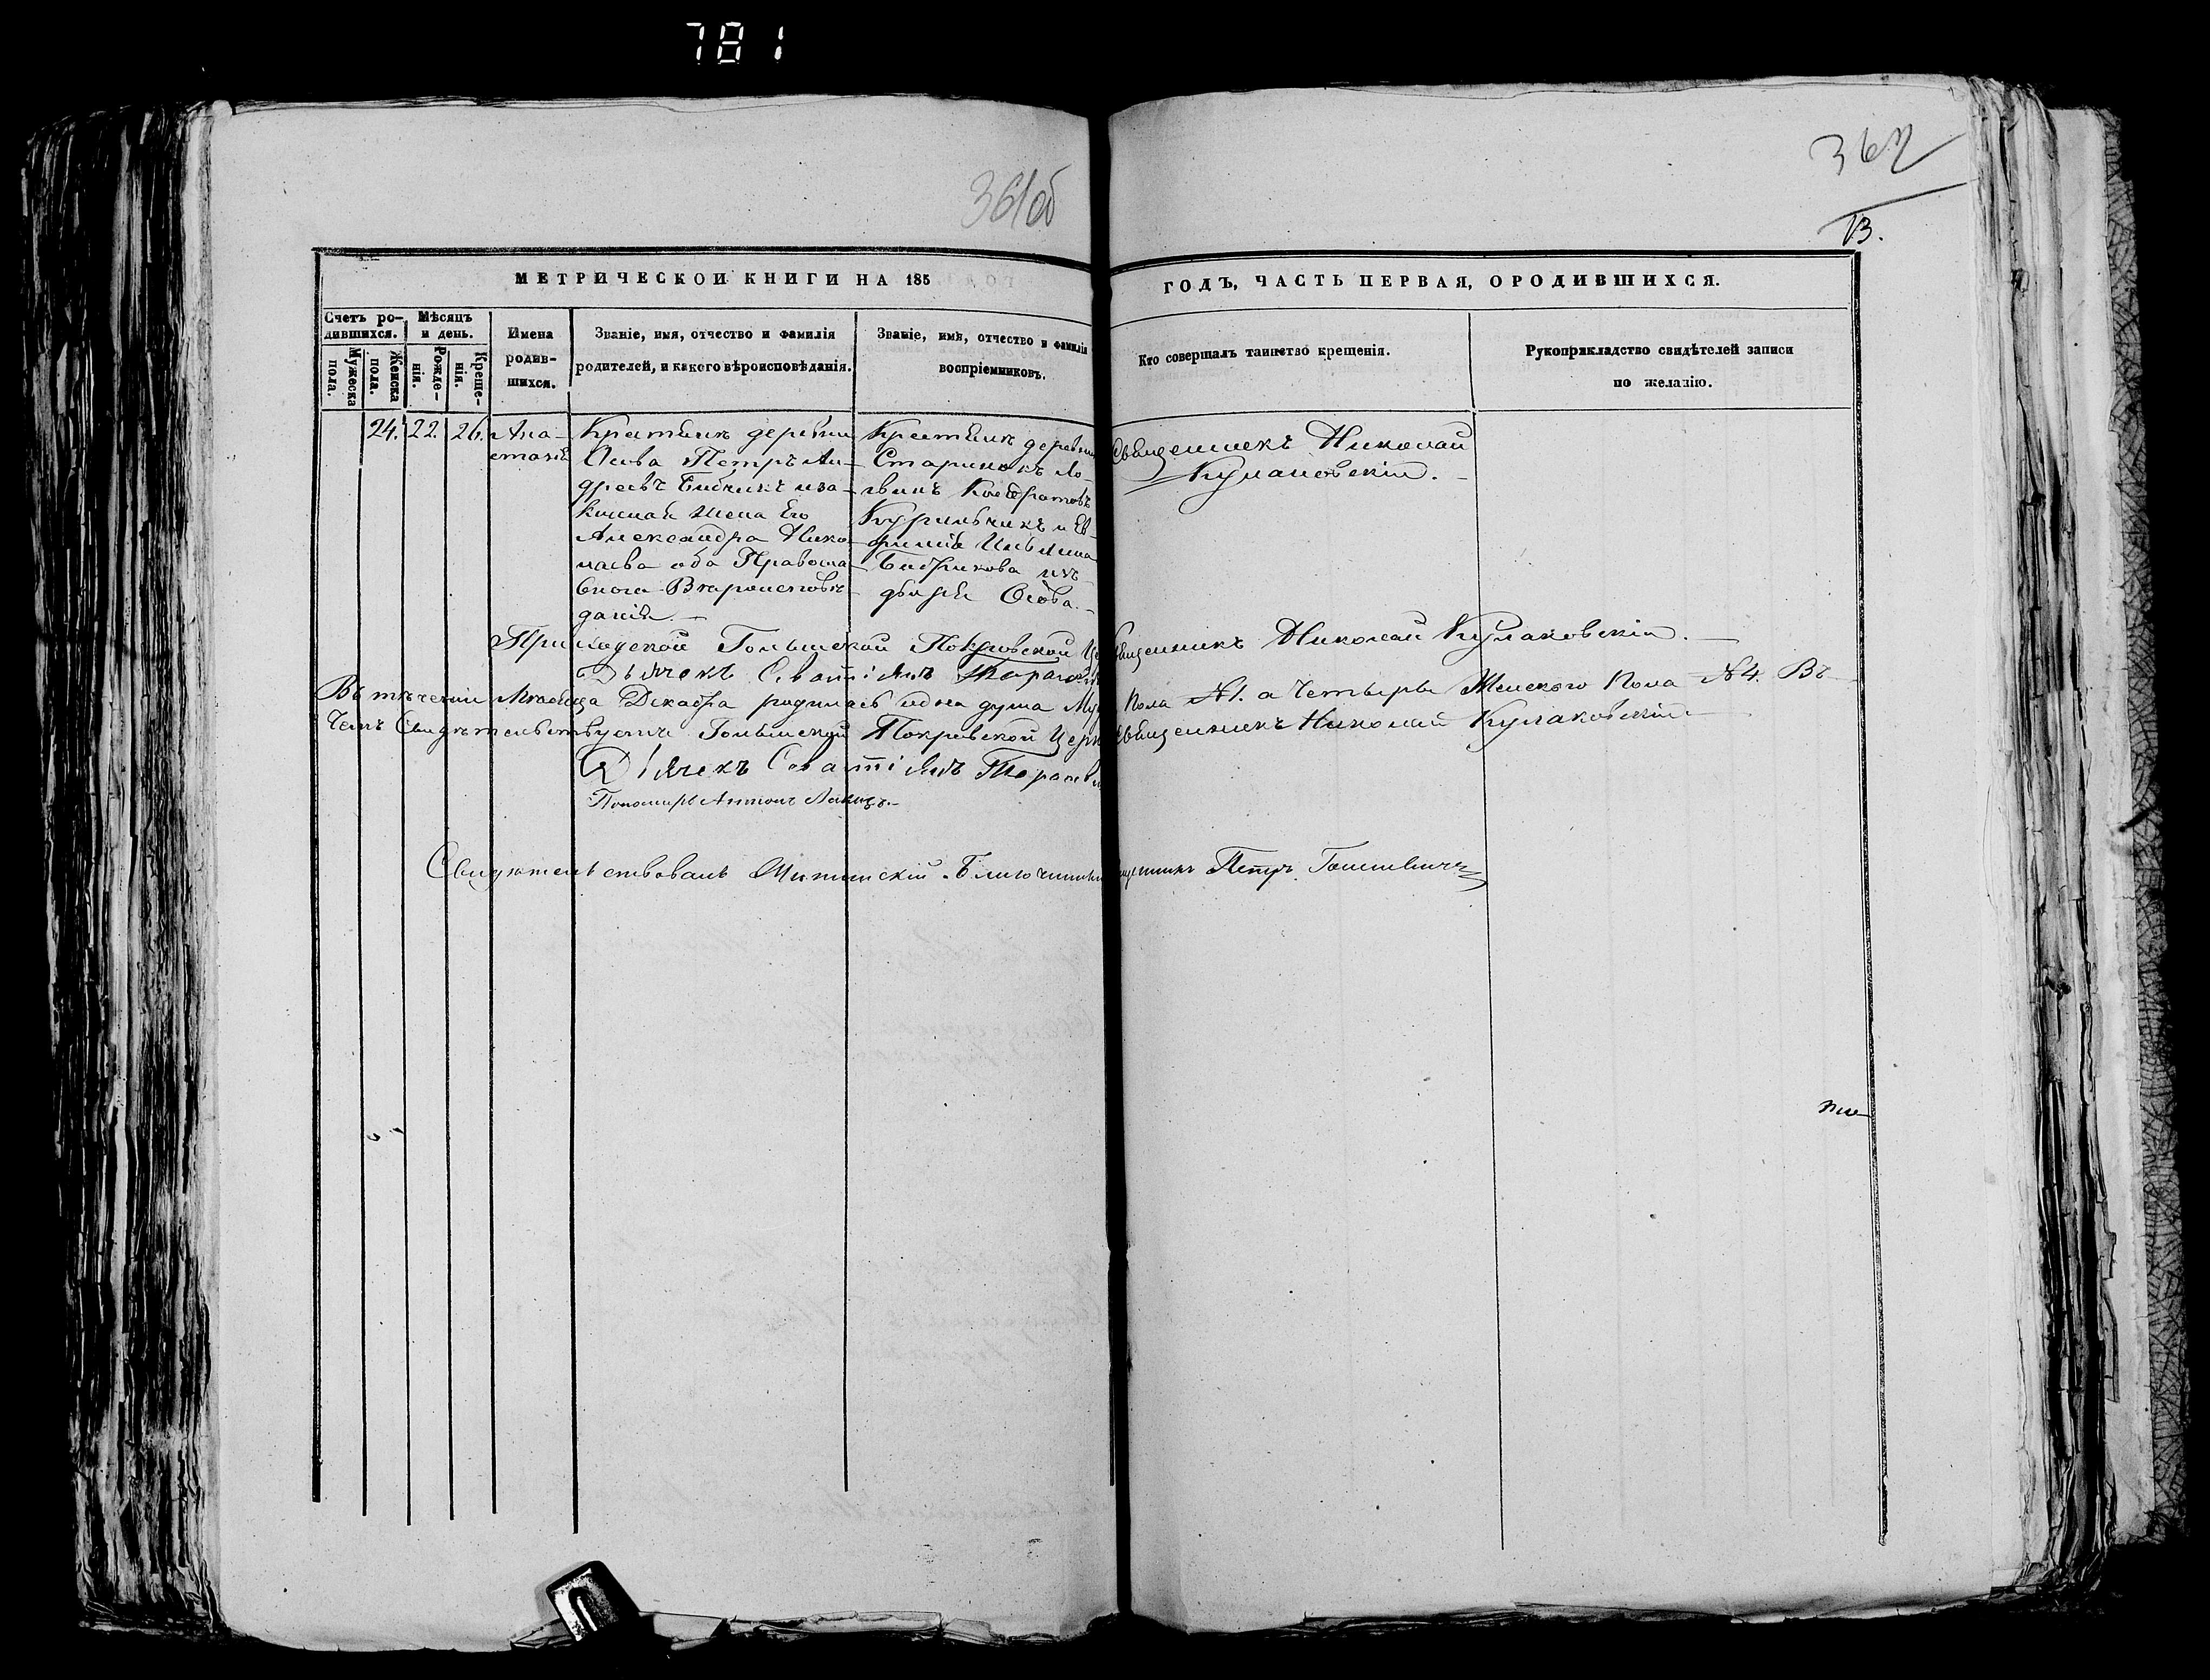 781
361об
362
13.
МЕТРИЧЕСКОЙ КНИГИ НА 185 ГОДЪ, ЧАСТЬ ПЕРВАЯ, О РОДИВШИХСЯ.
Счетъ ро-
дившихся.
Мужеска
пола.
Женска
пола.
Мѣсяцъ
и день.
Рожде-
нія.
Креще-
нія.
Имена
родив-
шихся.
Званіе, имя, отчество и фамилія
родителей, и какого вѣроисповѣданія.
Званіе, имя, отчество и фамилія
воспріемниковъ.
Кто совершалъ таинство крещенія.
Рукоприкладство свидѣтелей записи
по желанію.
24. 22. 26.
Ана-
стазія
Крестьянъ деревни
Осова Петръ Ан-
дреевъ Бибчикъ иза-
конная Жена Его
Александра Нико-
лаева оба Правосла-
внаго Вѣроисповѣ-
данія.
Крестьянъ деревни
Старинокъ Ло-
гвинъ Кондратовъ
Курильчикъ и Ев-
фимія
изъ
Осова.
Священникъ Николай
Кулаковскій.
Приходской Голынской Покровской Церкви Священникъ Николай Кулаковскій.
Дьячекъ
Въ теченіи Мѣсяца Декабря родилась одна душа Муж. Пола №1. а Четыре Женского Пола №4. Въ
Чемъ Свидѣтельствуемъ Голынской Покровской Церкви Священникъ Николай Кулаковскій
Дьячекъ
Пономарь Антонъ
Свидѣтельствовалъ Благочинный Священникъ Петръ